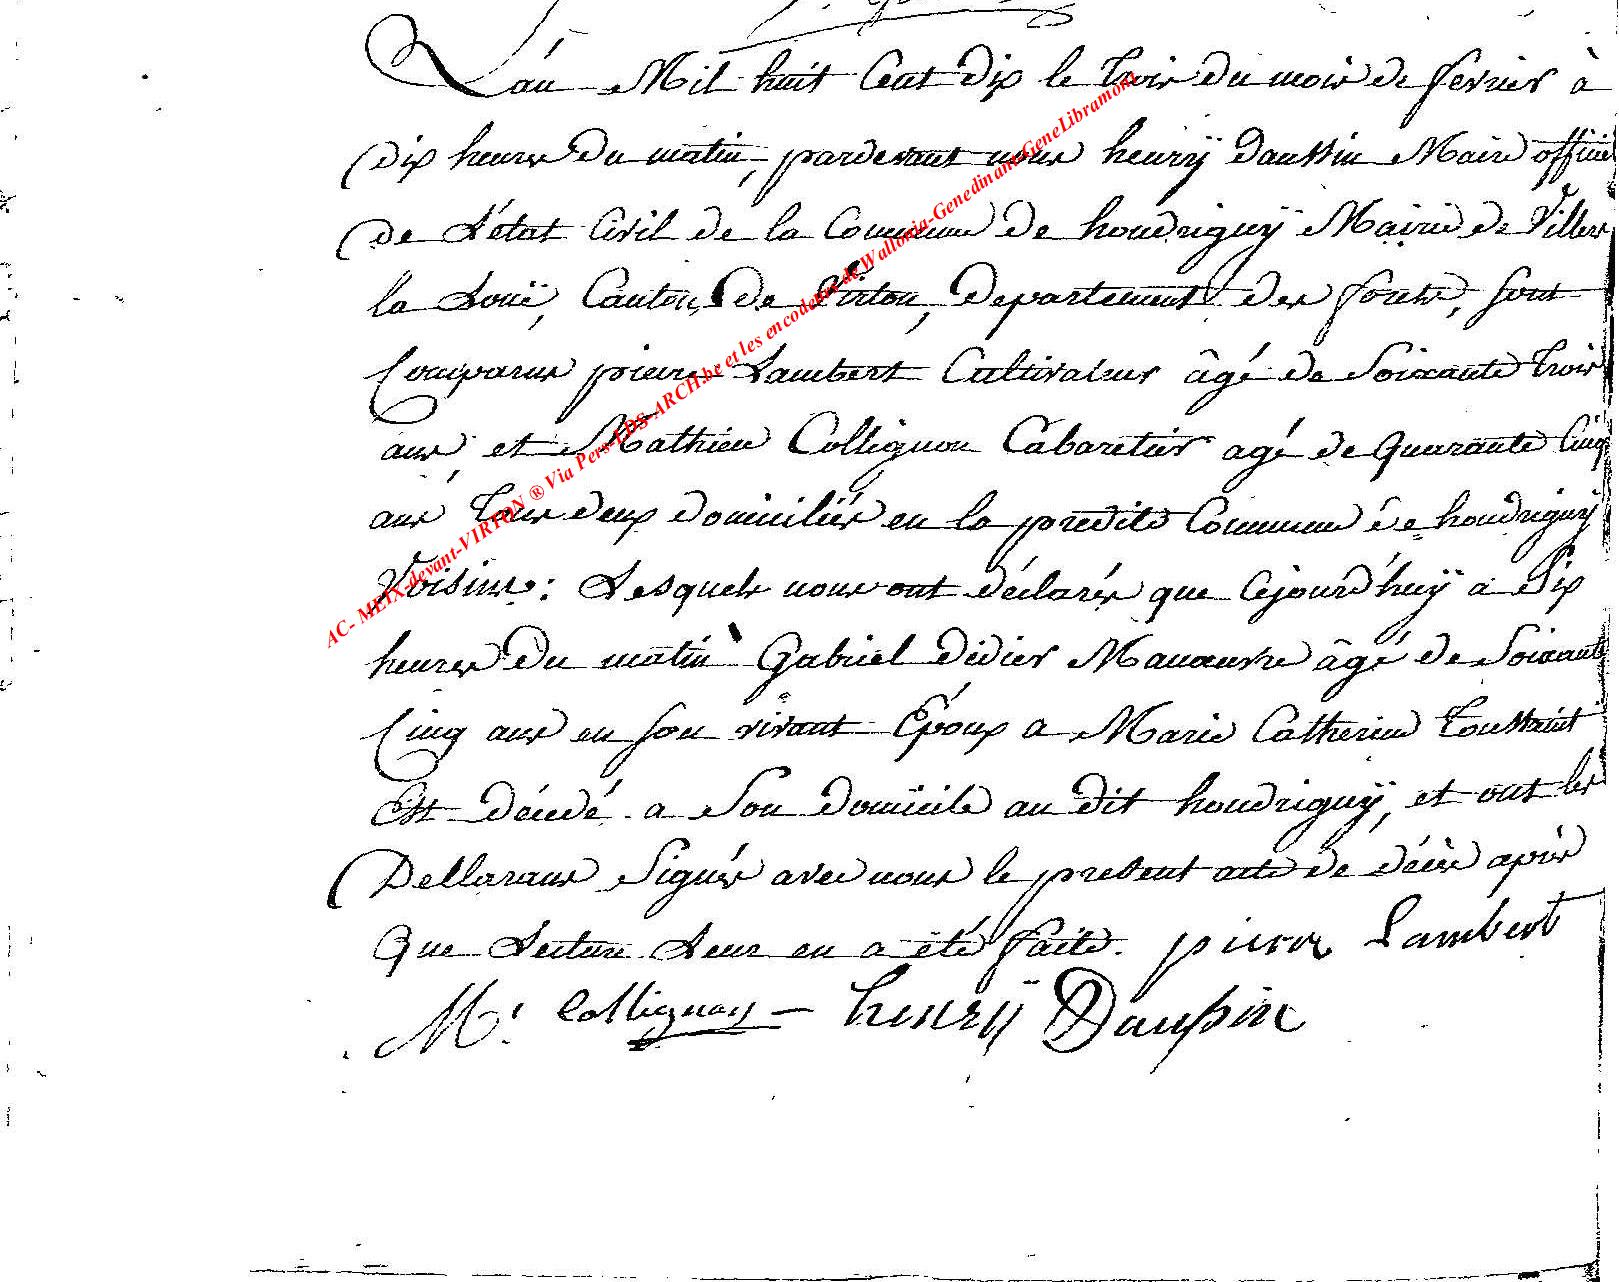 L'an Mil huit Cent dix le trois du mois de fevrier à
dix heures du matin, pardevant nous henrÿ daussin Maire officier
de L'état Civil de la Commune de houdrignÿ Mairie de Villers
la Loüe, Canton de Virton, departement des forets, sont
Comparus pierre Lambert Cultivateur âgé de Soixante trois
ans, et Mathieu Collignon Cabaretier agé de Quarante Cinq
ans tous deux domiciliés en la predite Commune de houdrigny
Voisins: Lesquels nous ont déclarés que Cejourd'huÿ a Dix
heures du matin Gabriel didier Manauvre âgé de Soixante
Cinq ans en son vivant Époux a Marie Catherine Toussaint
Est décédé a Son domicile au dit houdrignÿ, et ont les
Dellarans Signés avec nous le present acte de décès après
Que Lecture Leur en a été faite. pierre Lambert
M. Collignon henrÿ Daussin
AC- MEIX-devant-VIRTON ® Via Pers-LDS-ARCH.be et les encodeurs de Wallonia-Genedinant-GeneLibramont